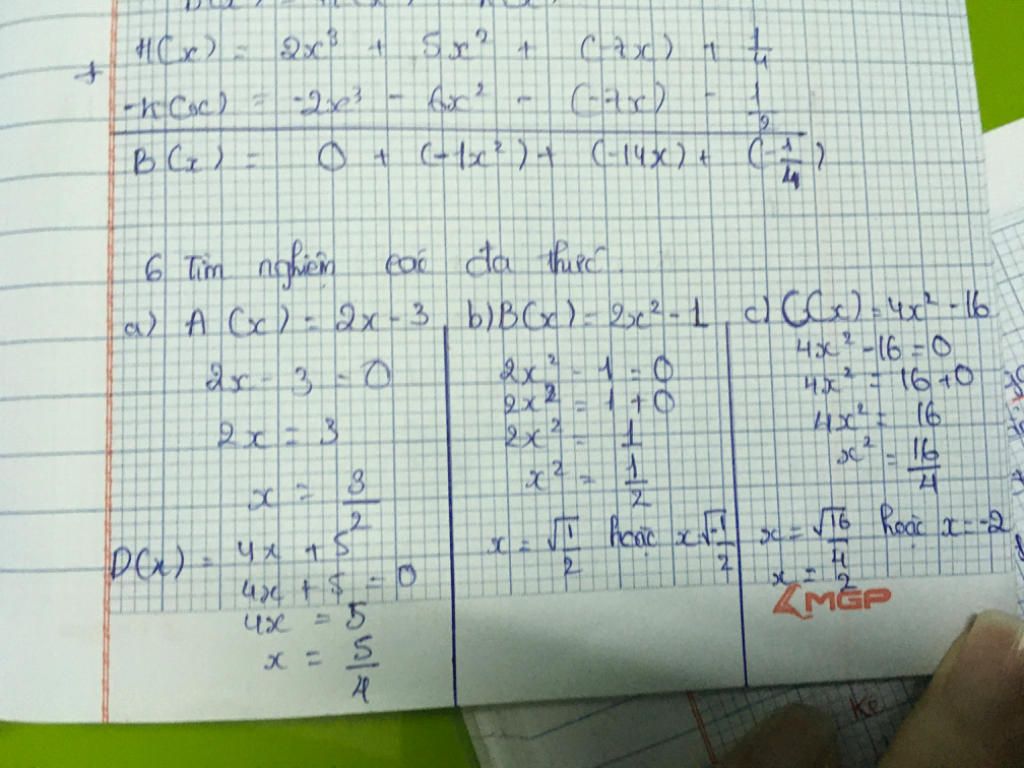 H(x) = 2x³ + 5x² + (-7x) + 1/4
+
-K(x) = -2x³ - 6x² - (-7x) - 1/2
B(x) = 0 + (-1x²) + (-14x) + (-1/4)
6 Tìm nghiệm các đa thức.
a) A(x) = 2x - 3
2x - 3 = 0
2x = 3
x = 3/2
D(x) = 4x + 5
4x + 5 = 0
4x = 5
x = 5/4
b) B(x) = 2x² - 1
2x² - 1 = 0
2x² = 1 + 0
2x² = 1
x² = 1/2
x = √1/2 hoặc x √-1/2
c) C(x) = 4x² - 16
4x² - 16 = 0
4x² = 16 + 0
4x² = 16
x² = 16/4
x = √16/4 hoặc x = -2
x = 2
MGP
Kẻ